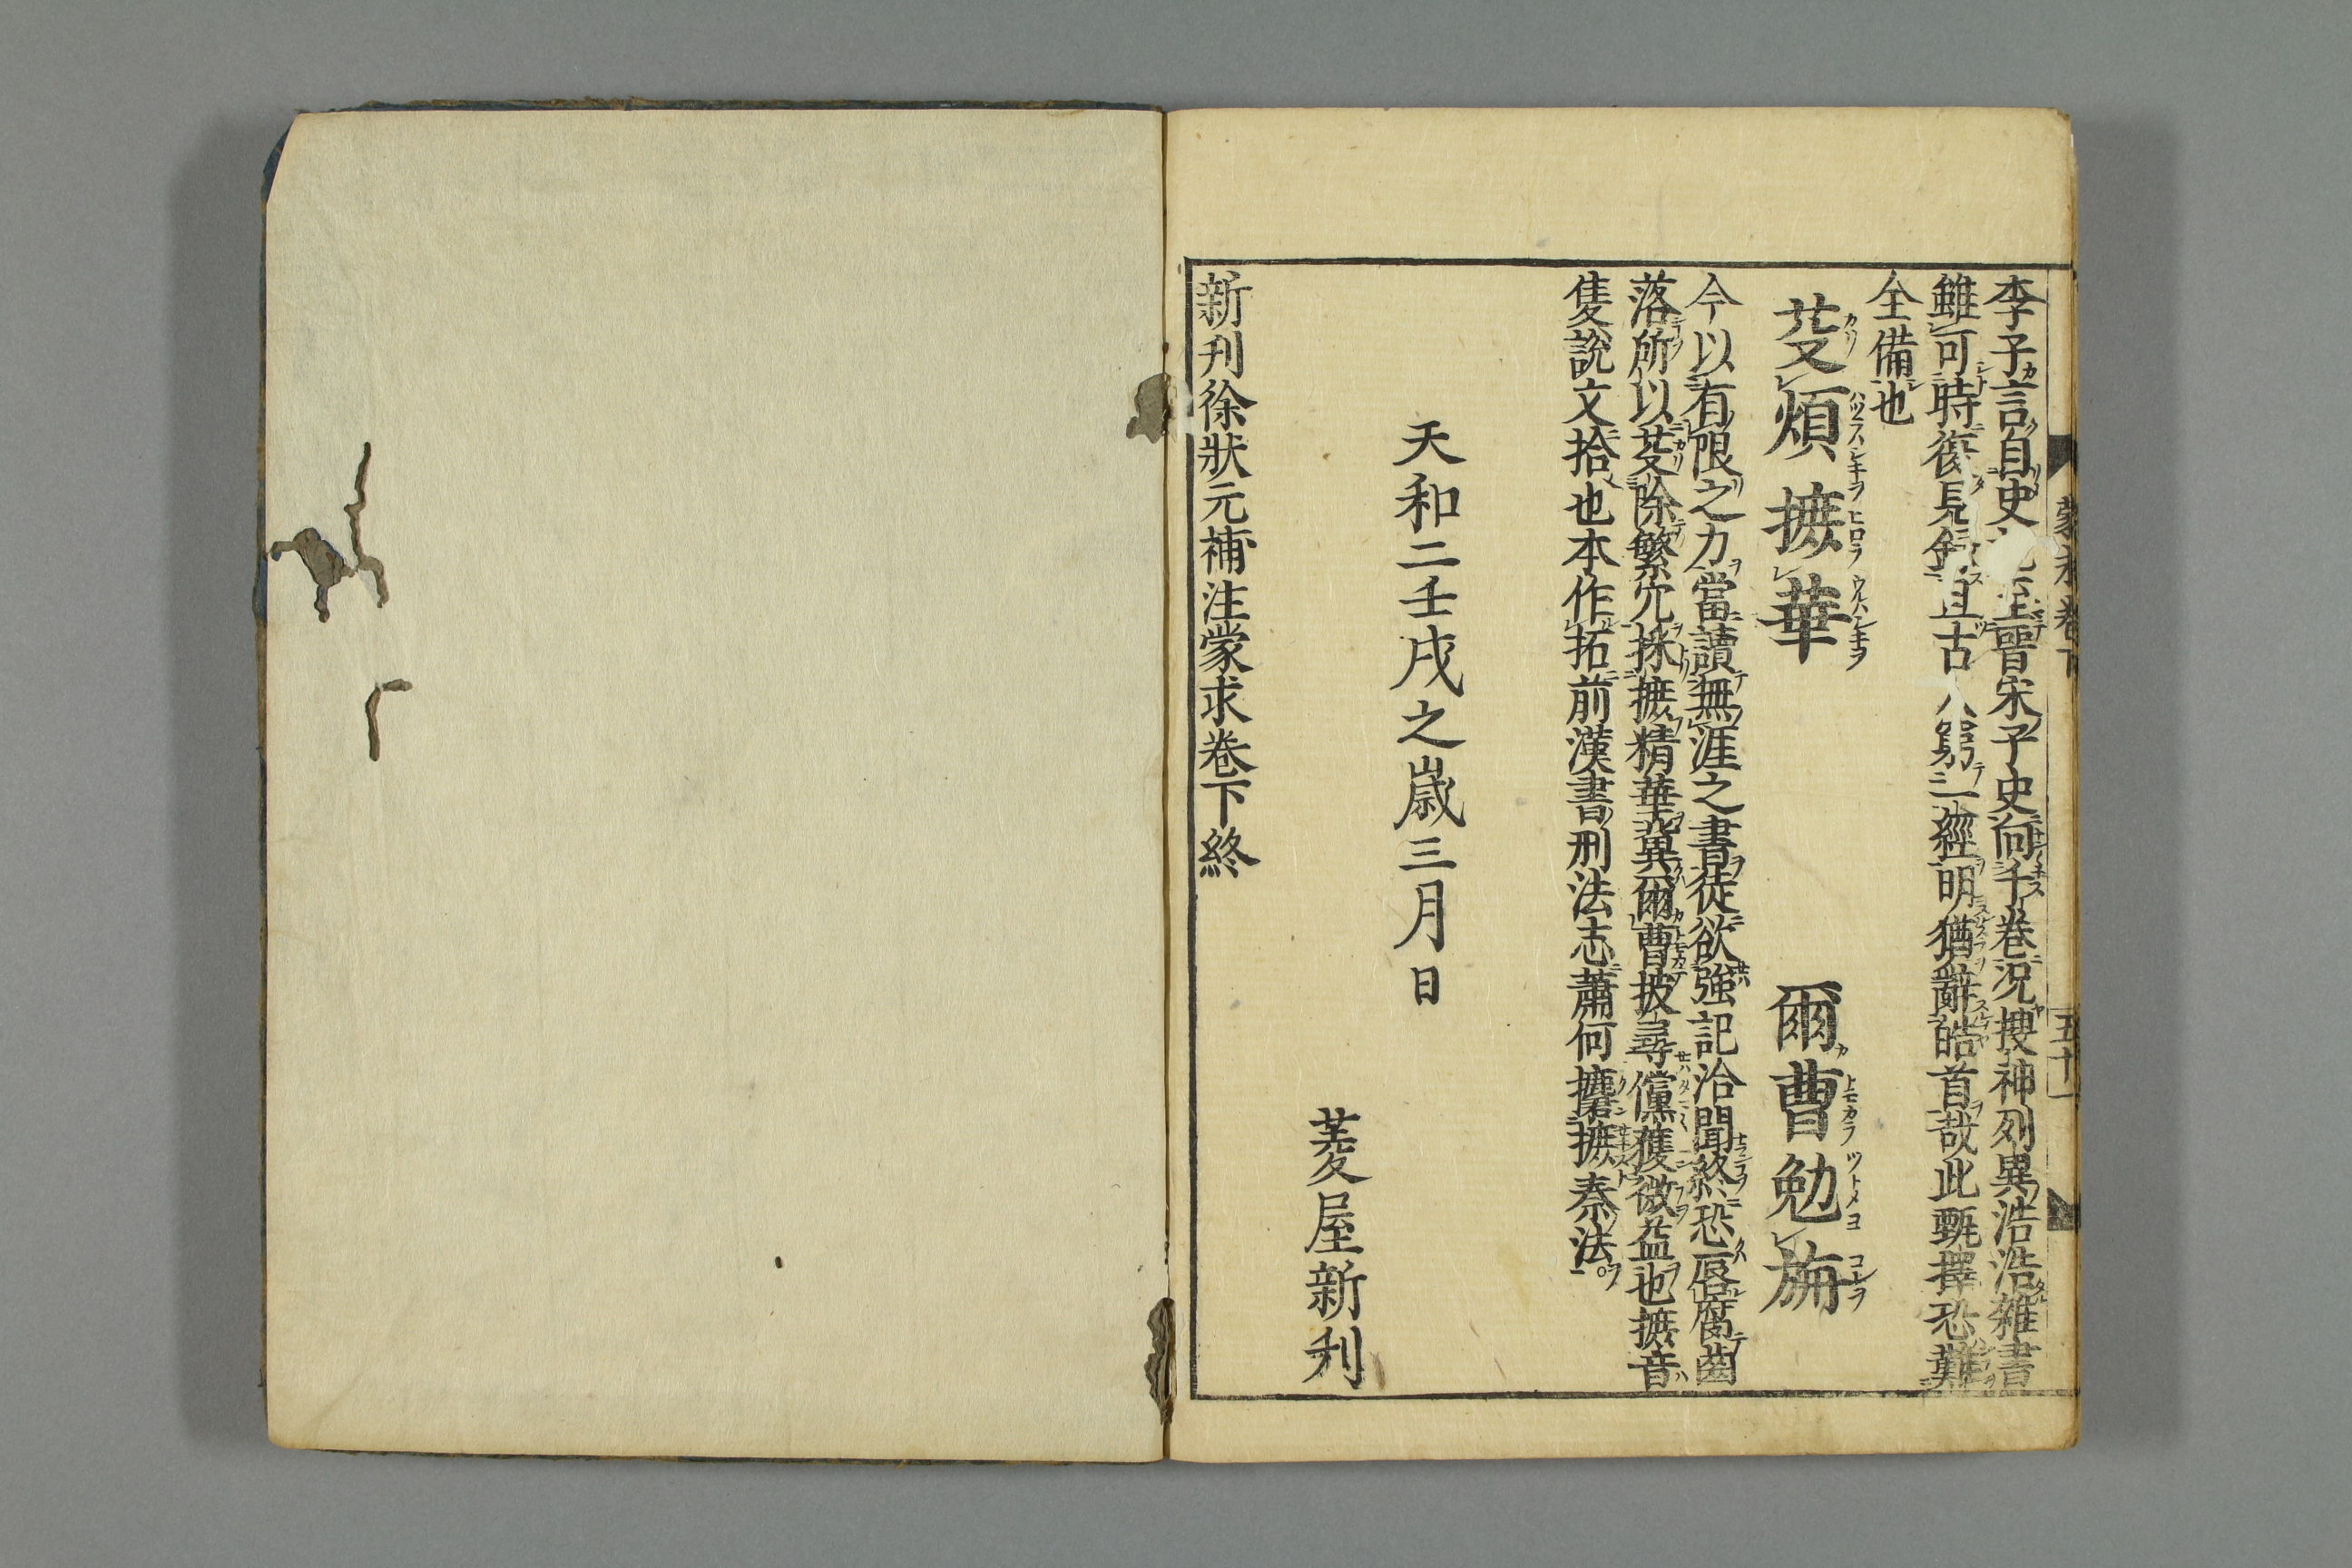 蒙求卷下 五十一
李子言自史 至晉宋子史向千卷況搜神列異浩浩雜書
雖可時復見 且古人窮一經明猶辭皓首哉此甄擇恐難
全備也
芟煩摭華 爾曹勉旃
今以有限之力當讀無涯之書徒欲強記洽聞終恐唇腐齒
落所以芟除繁冗採摭精華冀爾曹披尋儻獲微益也摭音
隻說文拾也本作拓前漢書刑法志蕭何攗摭秦法
天和二壬戌之歲三月日
菱屋新刋
新刋徐狀元補注蒙求卷下終